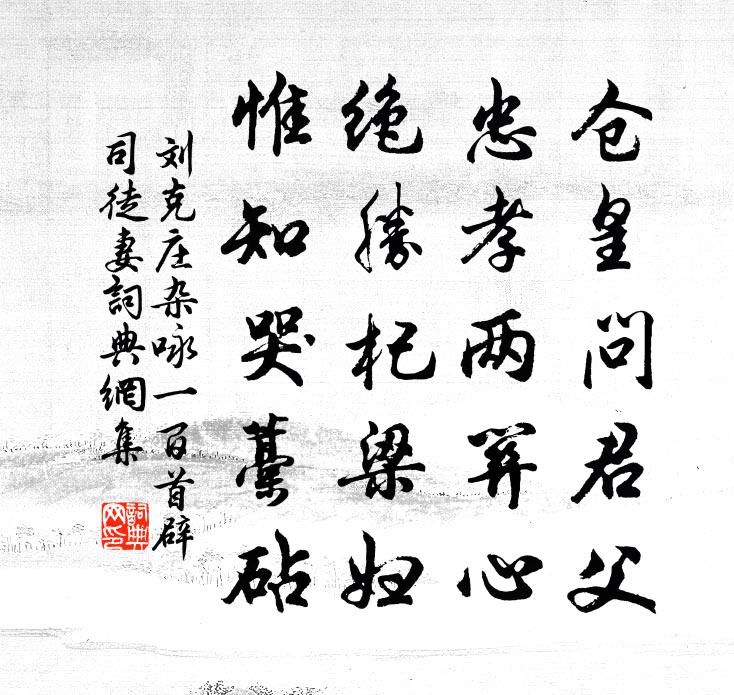 仓皇问君父
忠孝两关心
绝胜杞梁妇
惟知哭藁砧
刘克庄杂咏一百首辟
司徒妻詞典網集
詞典
网印